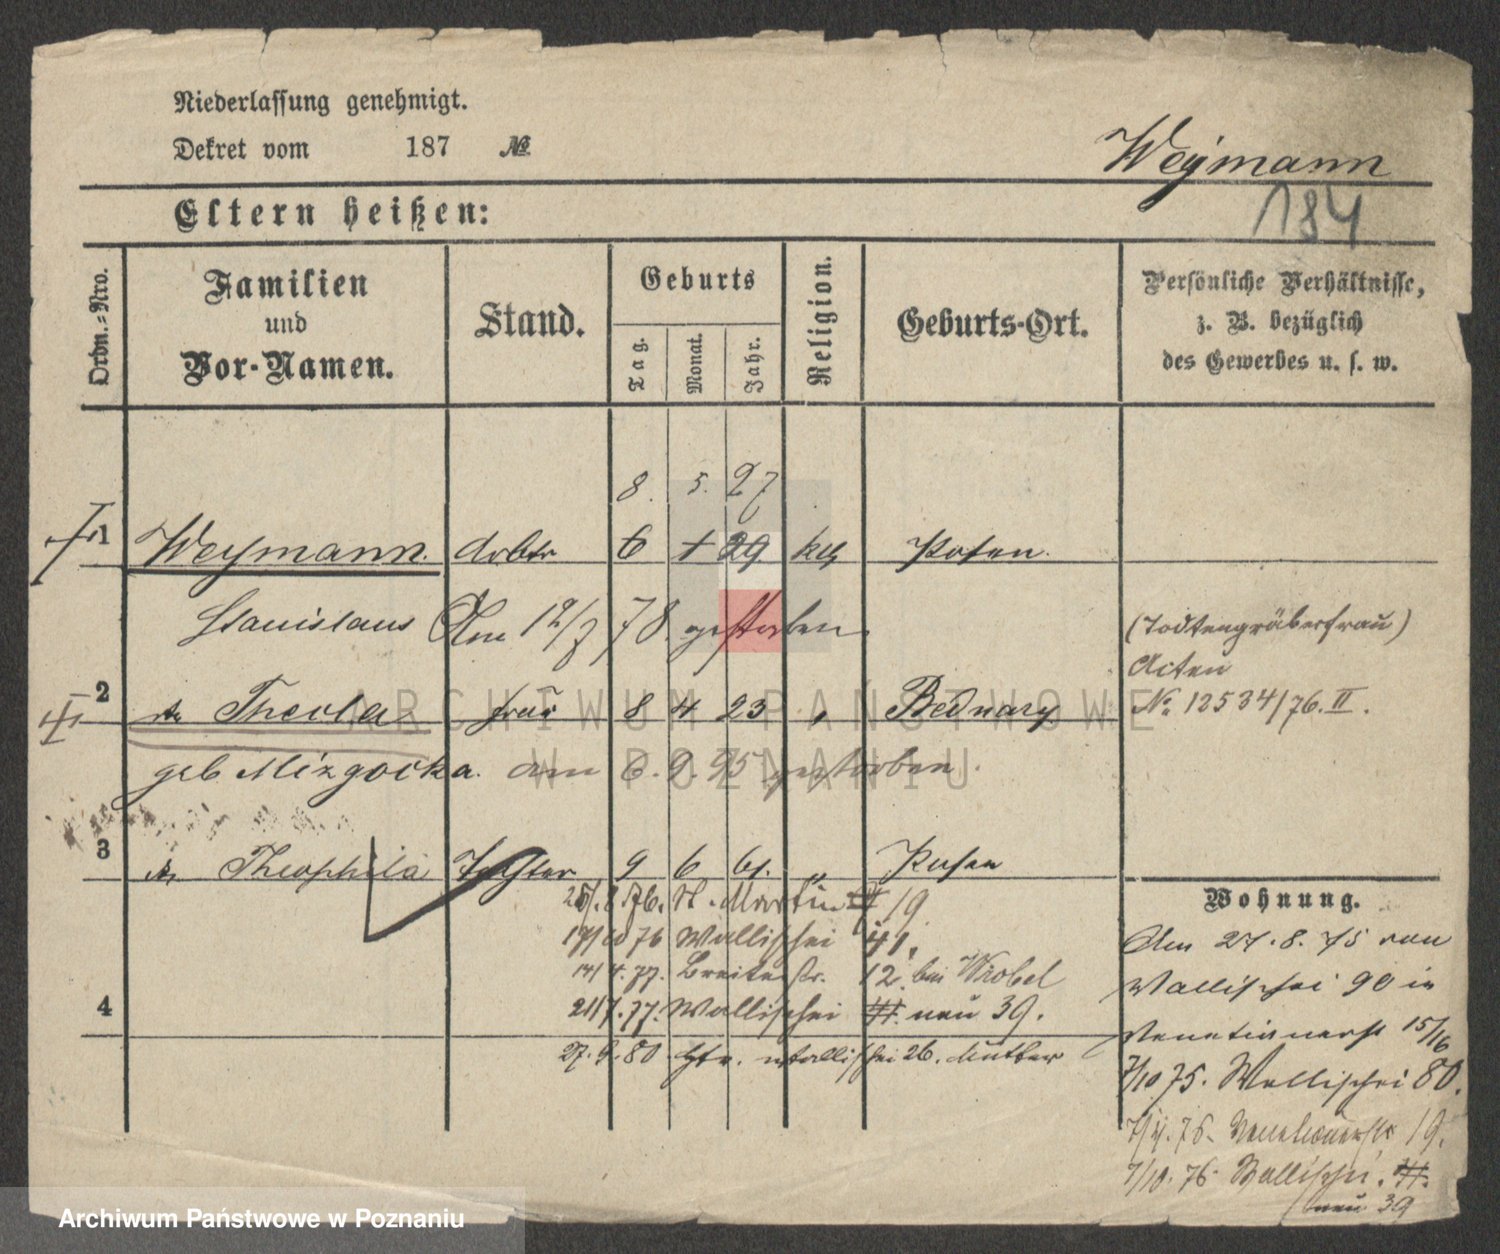 Niederlassung genehmigt.
Dekret vom 187 №
Weÿmann
184
Eltern heißen:
Ordn.-Nro.
Familien
und
Vor-Namen.
Stand.
Geburts
Tag.
Monat.
Jahr.
Religion.
Geburts-Ort.
Persönliche Verhältnisse,
z. B. bezüglich
des Gewerbes u. s. w.
8. 5. 27
1 Weymann. Arbtr 6 29 kth Posen.
Stanislaus Am 12/7 78 gestorben
(Todtengräberfrau)
Acten
№ 12534/76. II.
2 Theola frau 8 4 23 " Bednary
geb Mizgocka. am 6. 9. 95 gestorben.
3 Theophila Tochter 9 6 61. " Posen
25/.8.76. St. Martin 19
17/10 76 Wallischei 41.
14/4.77. Breitestr. 12. bei Wrobel
21/7.77. Wallischei neu 39.
4
27.9.80 Wallischei 26. Mutter
Wohnung.
Am 27.8.75 von
Wallischei 90 in
Venetianerstr 15/16
7/10 75. Wallischei 80.
76. Venetianerstr 19.
7/10.76. Wallischei.
neu 39
ARCHIWUM PAŃSTWOWE
W POZNANIU
Archiwum Państwowe w Poznaniu